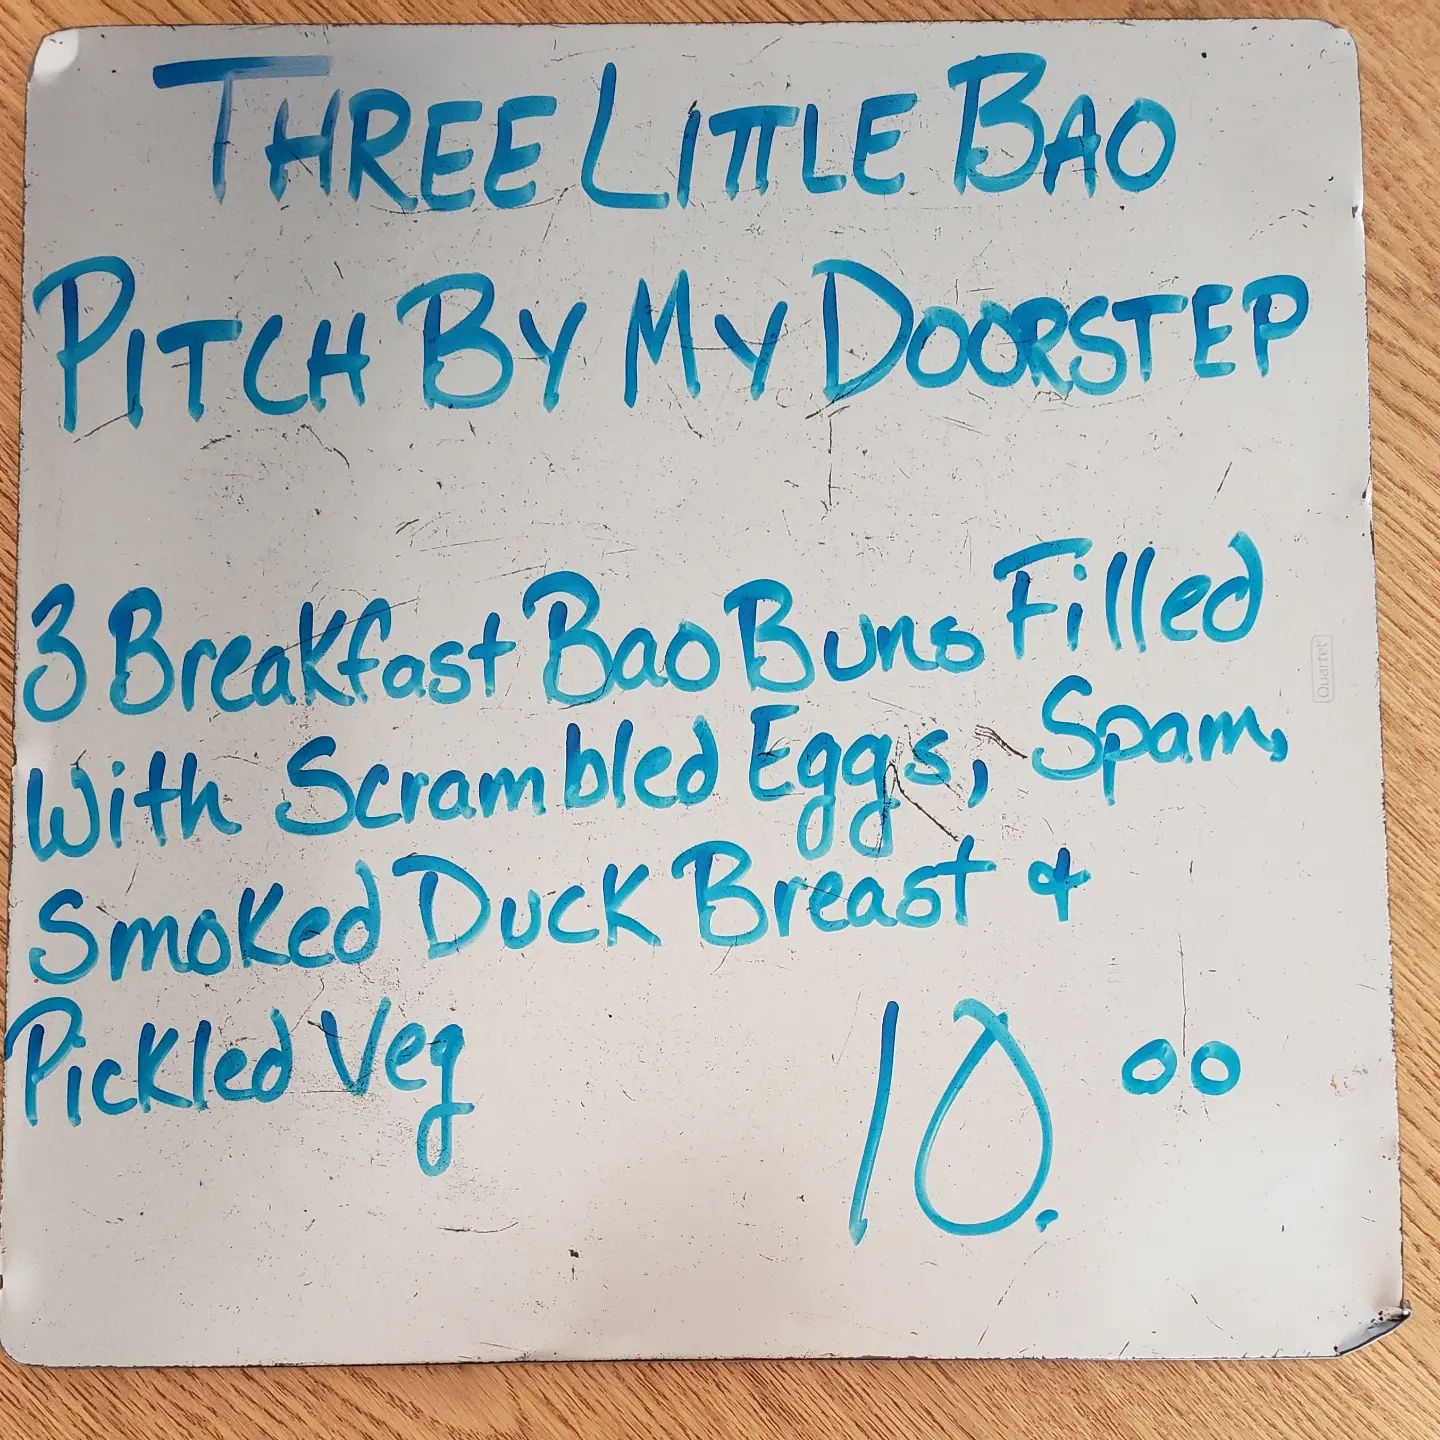 THREE LITTLE BAO
PITCH BY MY DOORSTEP
3 Breakfast Bao Buns Filled
With Scrambled Eggs, Spam,
Smoked Duck Breast &
Pickled Veg
10.00
Quartet